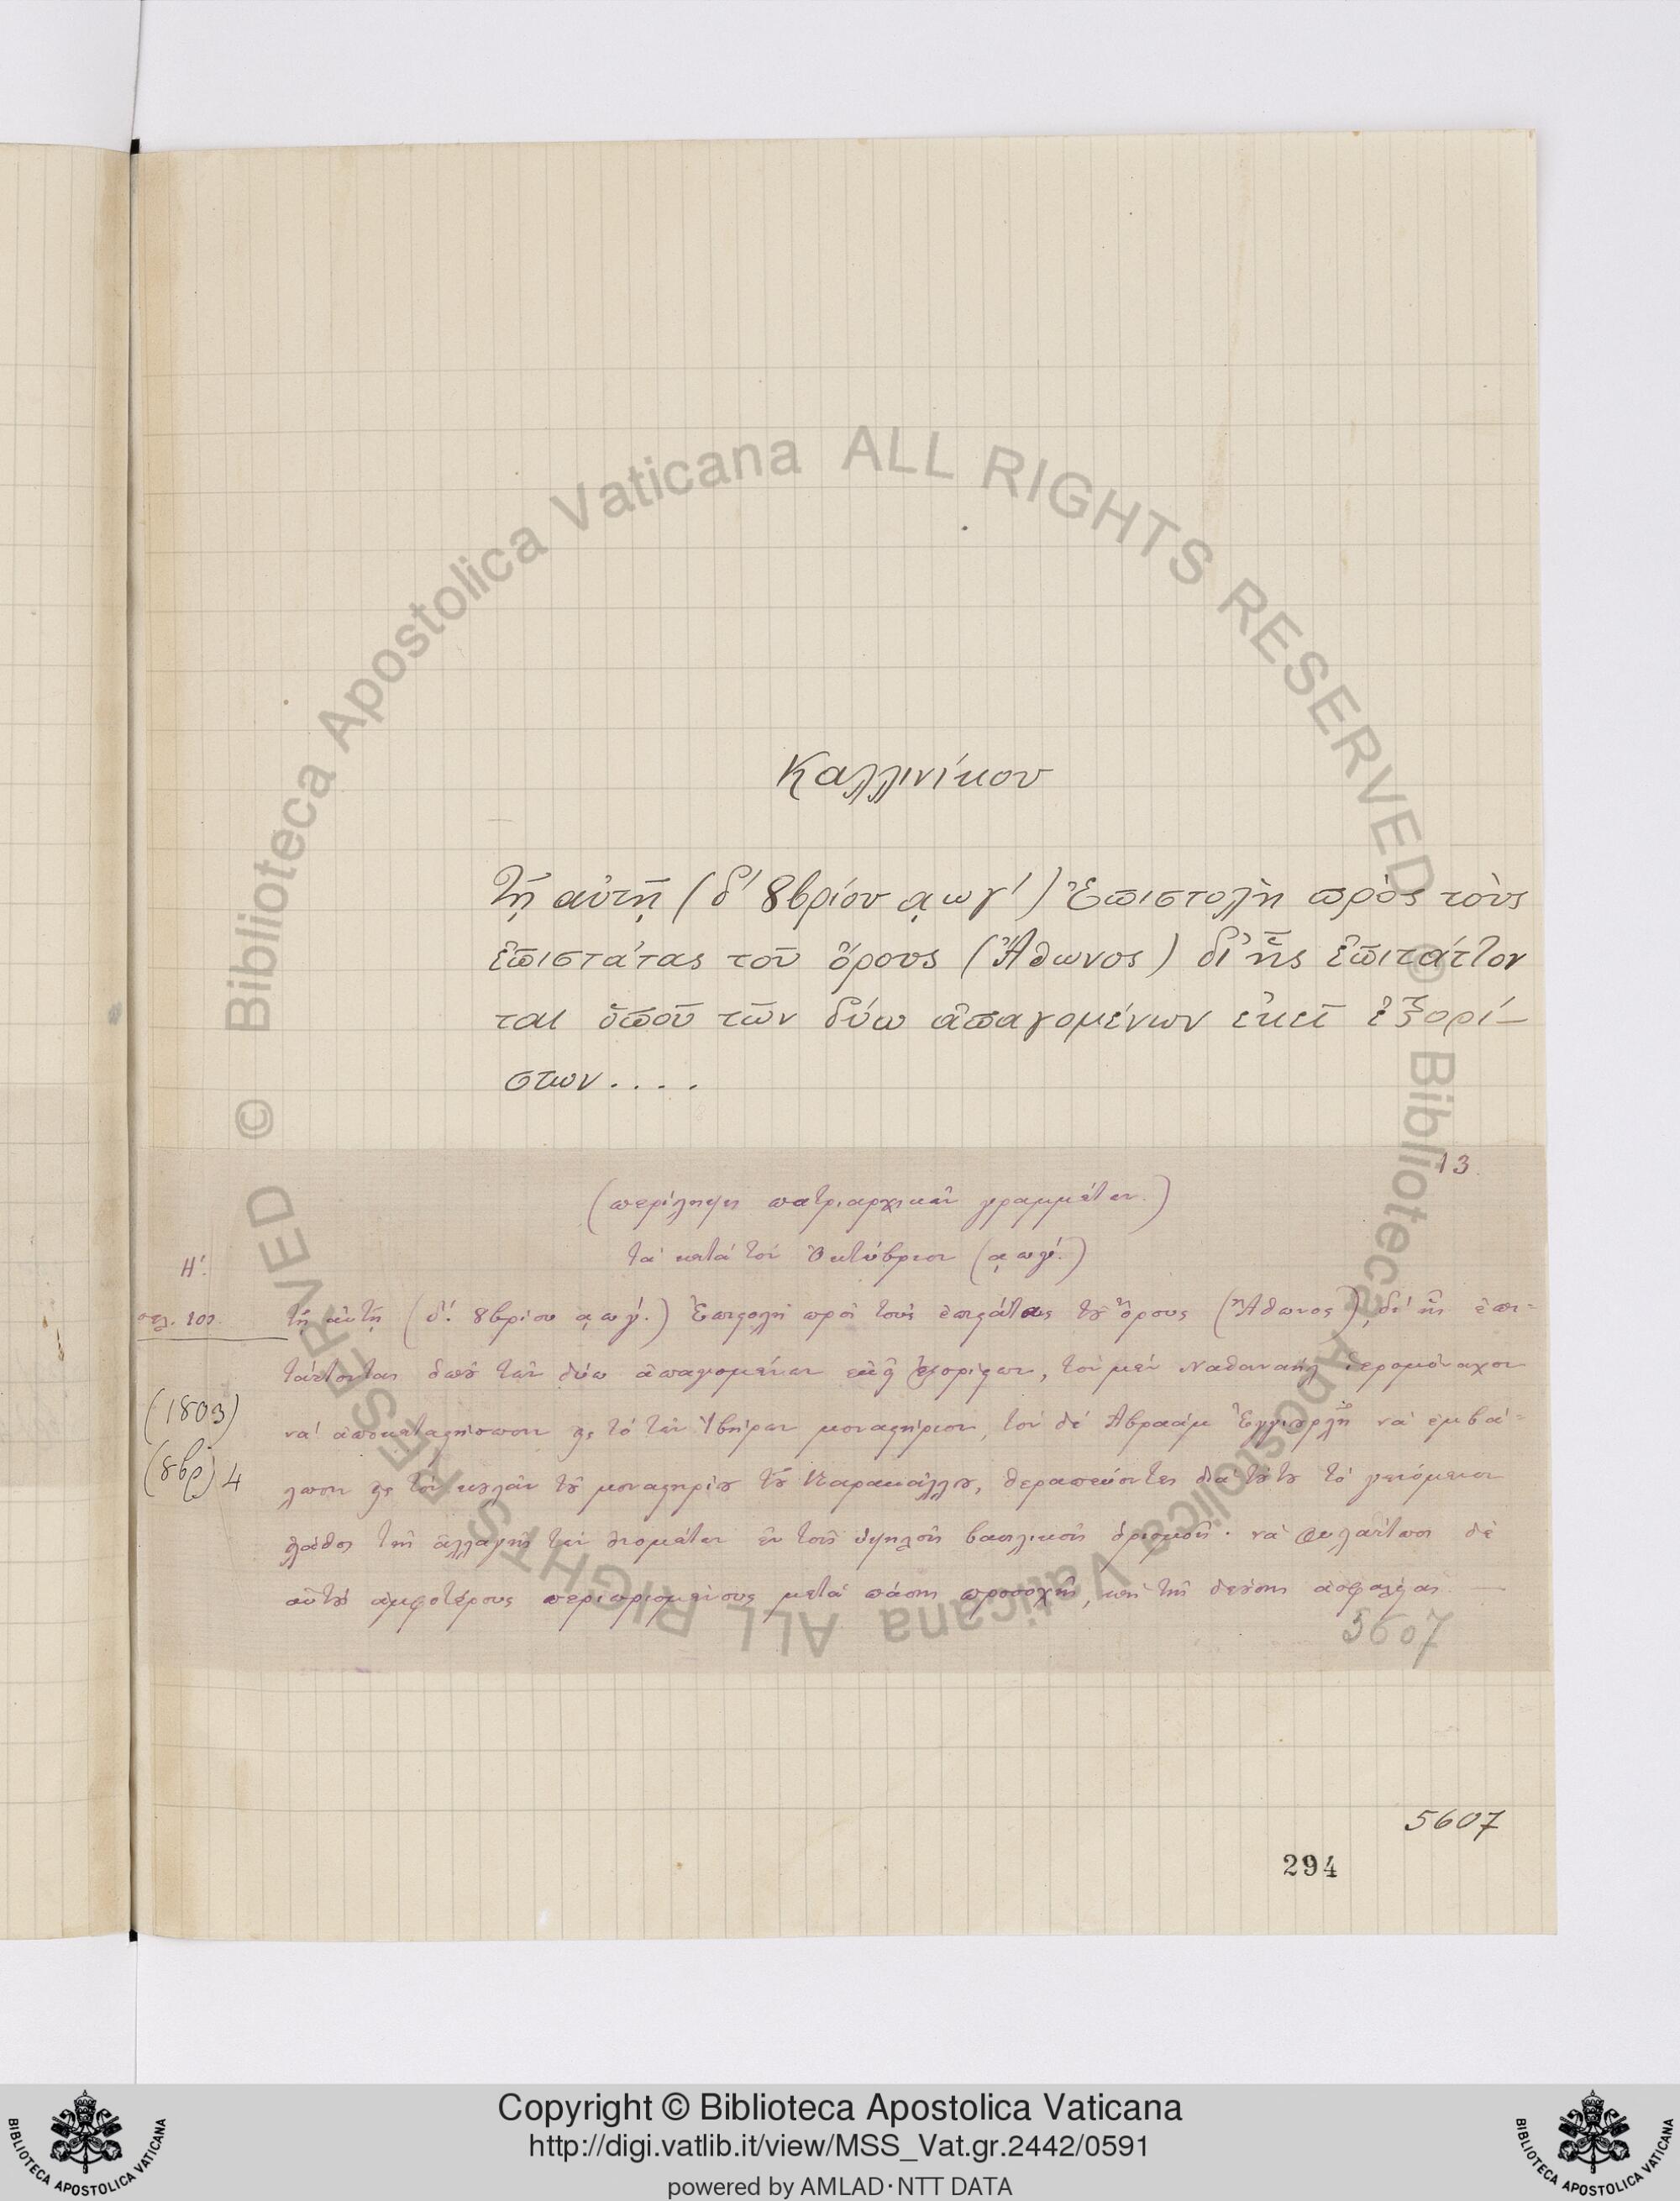 Καλλινίκου
Τῇ αὐτῇ (δ' 8βρίου ͵αωγ') Ἐπιστολὴ πρὸς τοὺς
ἐπιστάτας τοῦ ὄρους (Ἄθωνος) δι' ἧς ἐπιτάττον
ται ὁποῦ τῶν δύω ἀπαγομένων ἐκεῖ ἐξορί-
στων....
13.
(περίληψις πατριαρχικῶν γραμμάτων.)
τὰ κατὰ τὸν Ὀκτώβριον (͵αωγ'.)
Η'.
σελ. 101. τῇ αὐτῇ (δ'. 8βρίου ͵αωγ'.) Ἐπιστολὴ πρὸς τοὺς ἐπιστάτας τοῦ ὄρους (Ἄθωνος), δι' ἧς ἐπι=
τάττονται ὁποῦ τῶν δύω ἀπαγομένων ἐκεῖ ἐξορίστων, τὸν μὲν Ναθαναὴλ ἱερομόναχον
(1803) νὰ ἀποκαταστήσωσιν εἰς τὸ τῶν Ἰβήρων μοναστήριον, τὸν δὲ Ἀβραὰμ νὰ ἐμβά=
(8βρ) 4 λωσιν εἰς τὸν κουλᾶν τοῦ μοναστηρίου τοῦ Καρακάλλου, θεραπεύοντες διὰ τούτου τὸ γενόμενον
λάθος τῆς ἀλλαγῆς τῶν ὀνομάτων ἐν τοῖς ὑψηλοῖς βασιλικοῖς ὁρισμοῖς· νὰ φυλάττωσι δὲ
αὐτοὺς ἀμφοτέρους περιωρισμένους μετὰ πάσης προσοχῆς, καὶ τῆς δεούσης ἀσφαλείας.
5607
5607
294
© Biblioteca Apostolica Vaticana ALL RIGHTS RESERVED © Biblioteca Apostolica Vaticana ALL RIGHTS RESERVED
Copyright © Biblioteca Apostolica Vaticana
http://digi.vatlib.it/view/MSS_Vat.gr.2442/0591
powered by AMLAD·NTT DATA
BIBLIOTECA APOSTOLICA VATICANA
BIBLIOTECA APOSTOLICA VATICANA